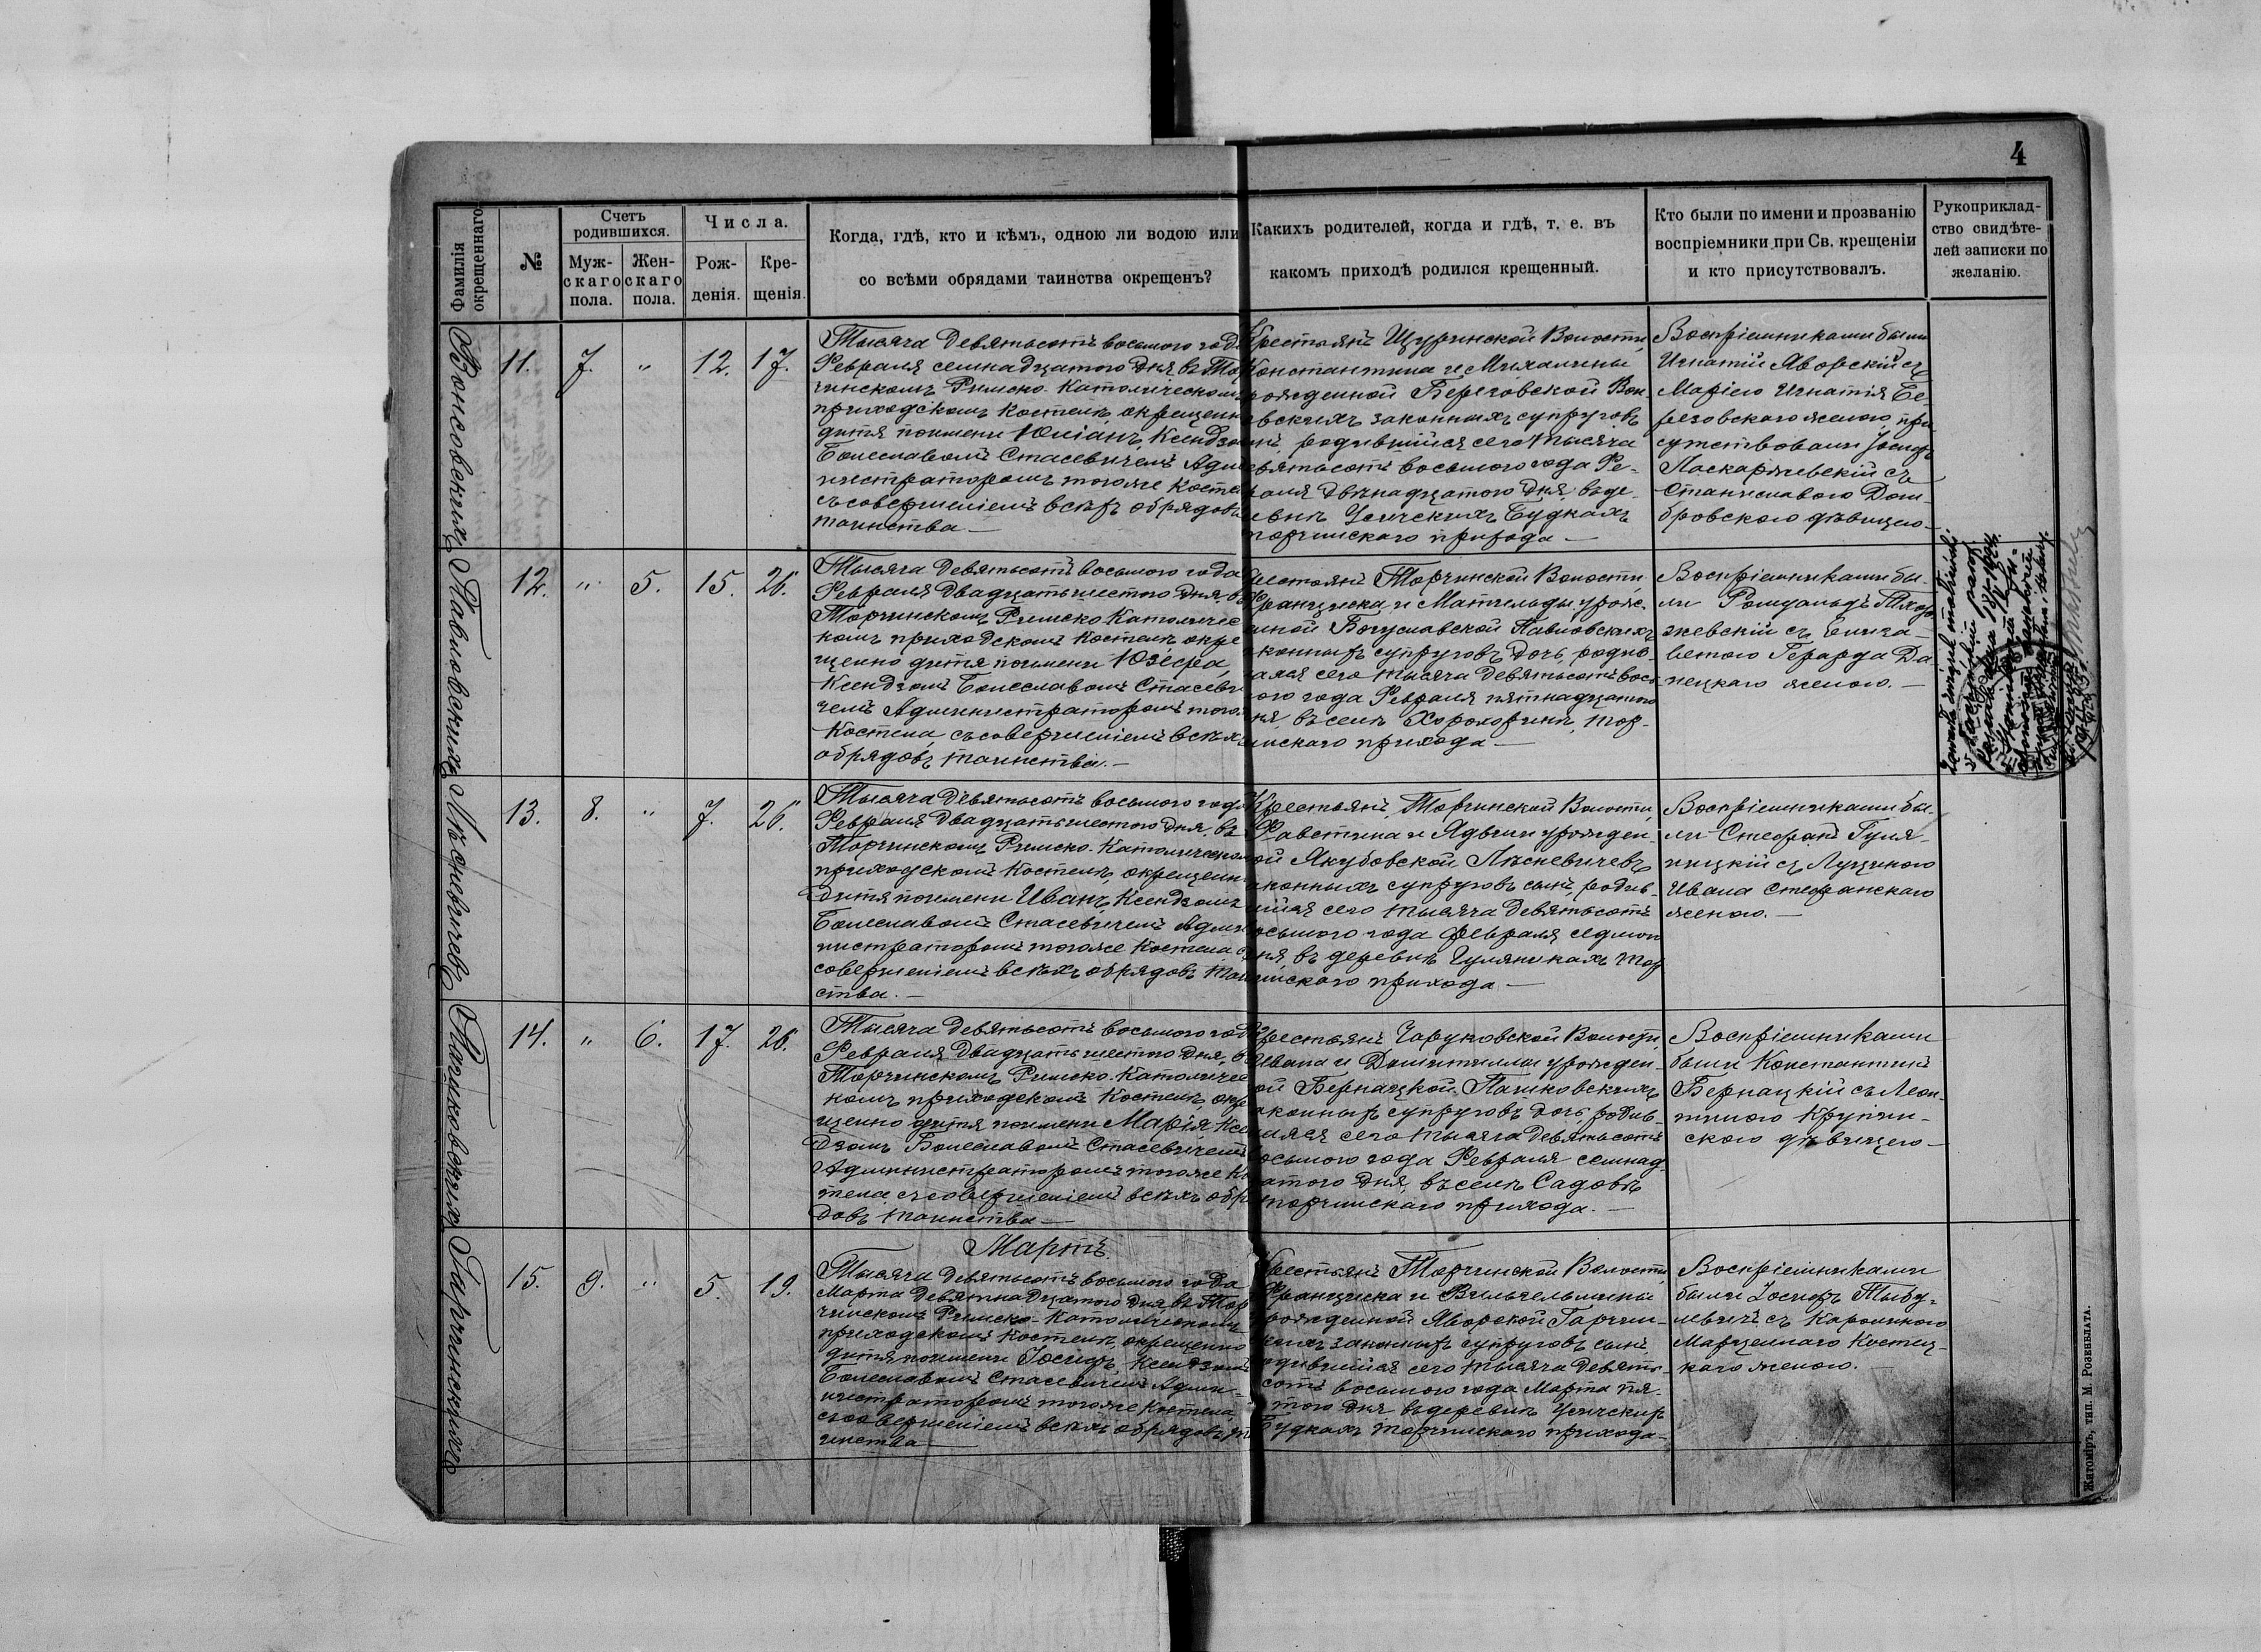 4
Фамилія
окрещеннаго
№
Счетъ
родившихся.
Муж-
скаго
пола.
Жен-
скаго
пола.
Числа.
Рож-
денія.
Кре-
щенія.
Когда, гдѣ, кто и кѣмъ, одною ли водою или
со всѣми обрядами таинства окрещенъ?
Какихъ родителей, когда и гдѣ, т. е. въ
какомъ приходѣ родился крещенный.
Кто были по имени и прозванію
воспріемники при Св. крещеніи
и кто присутствовалъ.
Рукоприклад-
ство свидѣте-
лей записки по
желанію.
Вонсовскихъ
11. 7. " 12. 17.
Тысяча девятьсотъ восьмого год
Февраля семнадцатого дня въ Тор
чинскомъ Римско-Католическом
приходскомъ костелѣ, окрещенн
дитя поимени Юліанъ, Ксендзо
Болеславомъ Стасевичемъ Адми
нистраторомъ тогоже костел
съ совершеніемъ всѣхъ обрядовъ
таинства —
Крестьянъ Щуринской Волости,
Константина и Михалины
рожденной Береговской Вон-
совскихъ законныхъ супруговъ
сынъ, родившійся сего тысяча
девятьсотъ восьмого года Фе-
враля двѣнадцатого дня, въ де-
ревнѣ Усичскихъ Будкахъ
торчинскаго прихода —
Воспріемниками были
Игнатій Яворскій съ
Маріею Игнатія Бе-
реговскаго женою, при
сутствовали Іосифъ
Паскаржевскій съ
Станиславою Дом-
бровскою дѣвицею —
Павловскихъ
12. " 5. 15. 26.
Тысяча девятьсотъ восьмого года
Февраля двадцать шестого дня, въ
Торчинскомъ Римско-Католичес
комъ приходскомъ костелѣ, окре
щенно дитя поимени Юзефа,
Ксендзомъ Болеславомъ Стасеви
чемъ Администраторомъ того
костела, съ совершеніемъ всѣхъ
обрядовъ таинства. —
рестьянъ Торчинской Волости,
Франциска и Матильды урож-
нной Богуславской Павловскихъ
конныхъ супруговъ дочь, родив-
аяся сего тысяча девятьсотъ вось-
ого года Февраля пятнадцатого
ня, въ селѣ Хорохоринѣ, тор-
инскаго прихода —
Воспріемниками бы-
ли Ромуальдъ Тхор-
жевскій съ Елиза-
ветою Герарда Да-
нецкаго женою. —
Лѣсневичевъ
13. 8. " 7. 26.
Тысяча девятьсотъ восьмого года
Февраля двадцать шестого дня, въ
Торчинскомъ Римско-Католическом
приходскомъ костелѣ, окрещенн
дитя поимени Иванъ, Ксендзомъ
Болеславомъ Стасевичемъ Адми
нистраторомъ тогоже костела съ
совершеніемъ всѣхъ обрядовъ таин
ства. —
Крестьянъ Торчинской Волости,
Фавстина и Ядвиги урожден-
ой Якубовской Лѣсневичевъ
аконныхъ супруговъ сынъ, родив-
шійся сего тысяча девятьсотъ
осьмого года февраля седмого
ня въ деревнѣ Гуляникахъ тор
чинскаго прихода —
Воспріемниками бы-
ли Стефанъ Гуля-
ницкій съ Луциною
Ивана Стефанскаго
женою. —
Пашковскихъ
14. " 6. 17. 26.
Тысяча девятьсотъ восьмого год
Февраля двадцать шестого дня, въ
Торчинскомъ Римско-Католичес
комъ приходскомъ костелѣ окре
щенно дитя поимени Марія Ксен
дзомъ Болеславомъ Стасевичемъ
Администраторомъ тогоже ко
тела съ совершеніемъ всѣхъ обр
довъ таинства —
рестьянъ Чаруковской Волости,
Ивана и Домитиллы урожден-
ой Бернацкой Пашковскихъ
аконныхъ супруговъ дочь, родив-
шаяся сего тысяча девятьсотъ
осьмого года Февраля семнад-
атого дня, въ селѣ Садовѣ
торчинскаго прихода. —
Воспріемниками
были Константинъ
Бернацкій съ Леон-
тиною Крупин-
скою дѣвицею —
Гарчинскихъ
Мартъ.
15. 9. " 5. 19.
Тысяча девятьсотъ восьмого года
Марта девятнадцатого дня въ Тор
чинскомъ Римско-Католическомъ
приходскомъ костелѣ, окрещенно
дитя поимени Іосифъ, Ксендзомъ
Болеславомъ Стасевичемъ Адми-
нистраторомъ тогоже костела,
съ совершеніемъ всѣхъ обрядовъ та
инства —
Крестьянъ Торчинской Волости,
Франциска и Вильгельмины
рожденной Яворской Гарчин-
скихъ законныхъ супруговъ сынъ,
одившійся сего тысяча девять-
сотъ восьмого года Марта пя-
того дня въ деревнѣ Усичскихъ
Будкахъ торчинскаго прихода —
Воспріемниками
были Іосифъ Тыбу-
левичъ съ Каролиною
Марцеллаго Костец-
каго женою. —
Житомiръ, тип. М. Розенблата.